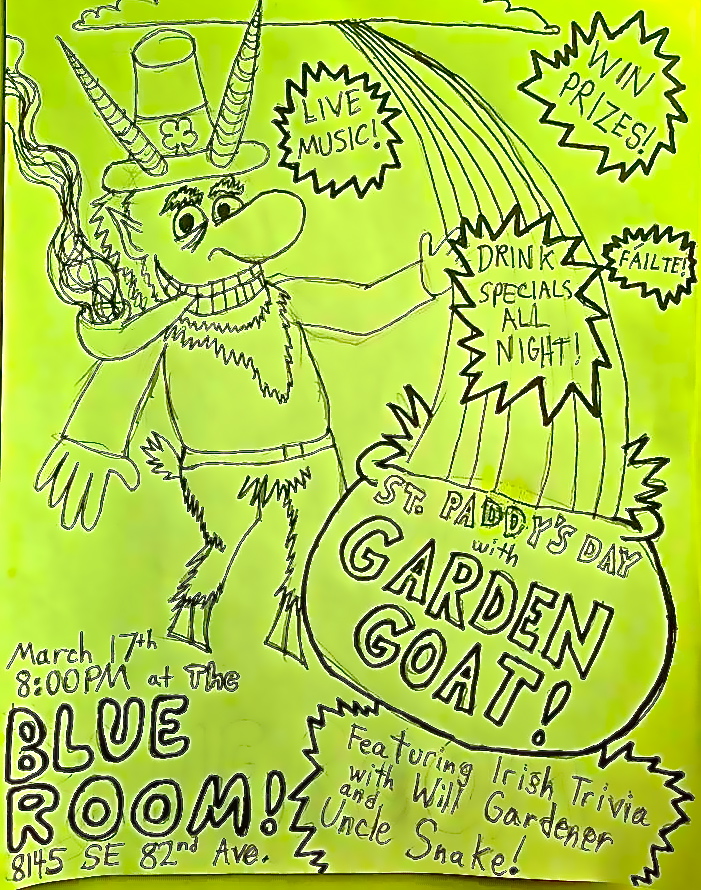 LIVE
MUSIC!
WIN
PRIZES!
DRINK
SPECIALS
ALL
NIGHT!
FÁILTE!
ST. PADDY'S DAY
with
GARDEN
GOAT!
March 17th
8:00PM at The
BLUE
ROOM!
8145 SE 82nd Ave.
Featuring Irish Trivia
with Will Gardener
and
Uncle Snake!